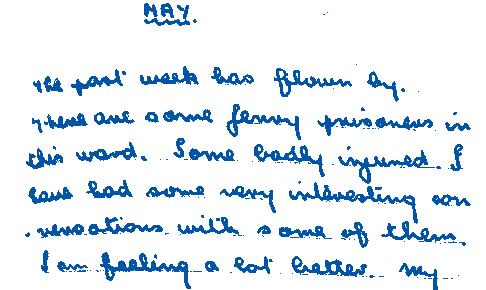 MAY.
The past week has flown by.
There are some Jerry prisoners in
this ward. Some badly injured. I
have had some very interesting con
versations with some of them.
I am feeling a lot better. My